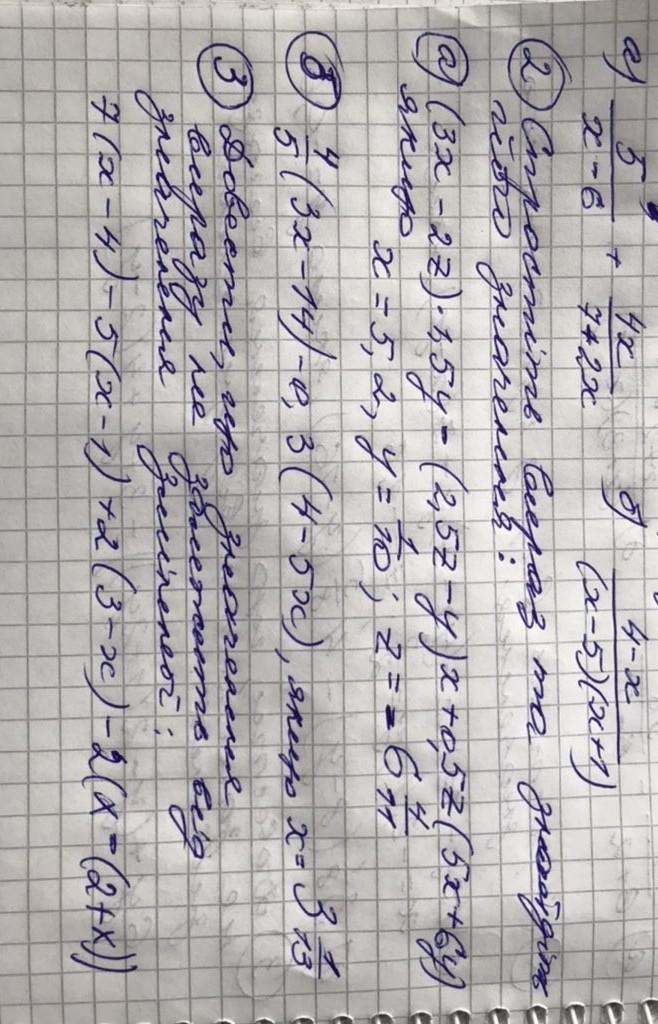 а) 5/(x-6) + 4x/(7+2x) б) (4-x)/((x-5)(x+1))
② Спростіть вираз та знайдіть
його значення:
ⓐ (3x-2z)·1,5y-(2,5z-y)x+0,5z(5x+6y)
якщо x=5,2, y=1/10; z=-6 4/11
ⓑ 4/5(3x-14)-0,3(4-5x), якщо x=3 1/13
③ Довести, що значення
виразу не залежить від
значення змінної:
7(x-4)-5(x-1)+2(3-x)-2(x-(2+x))